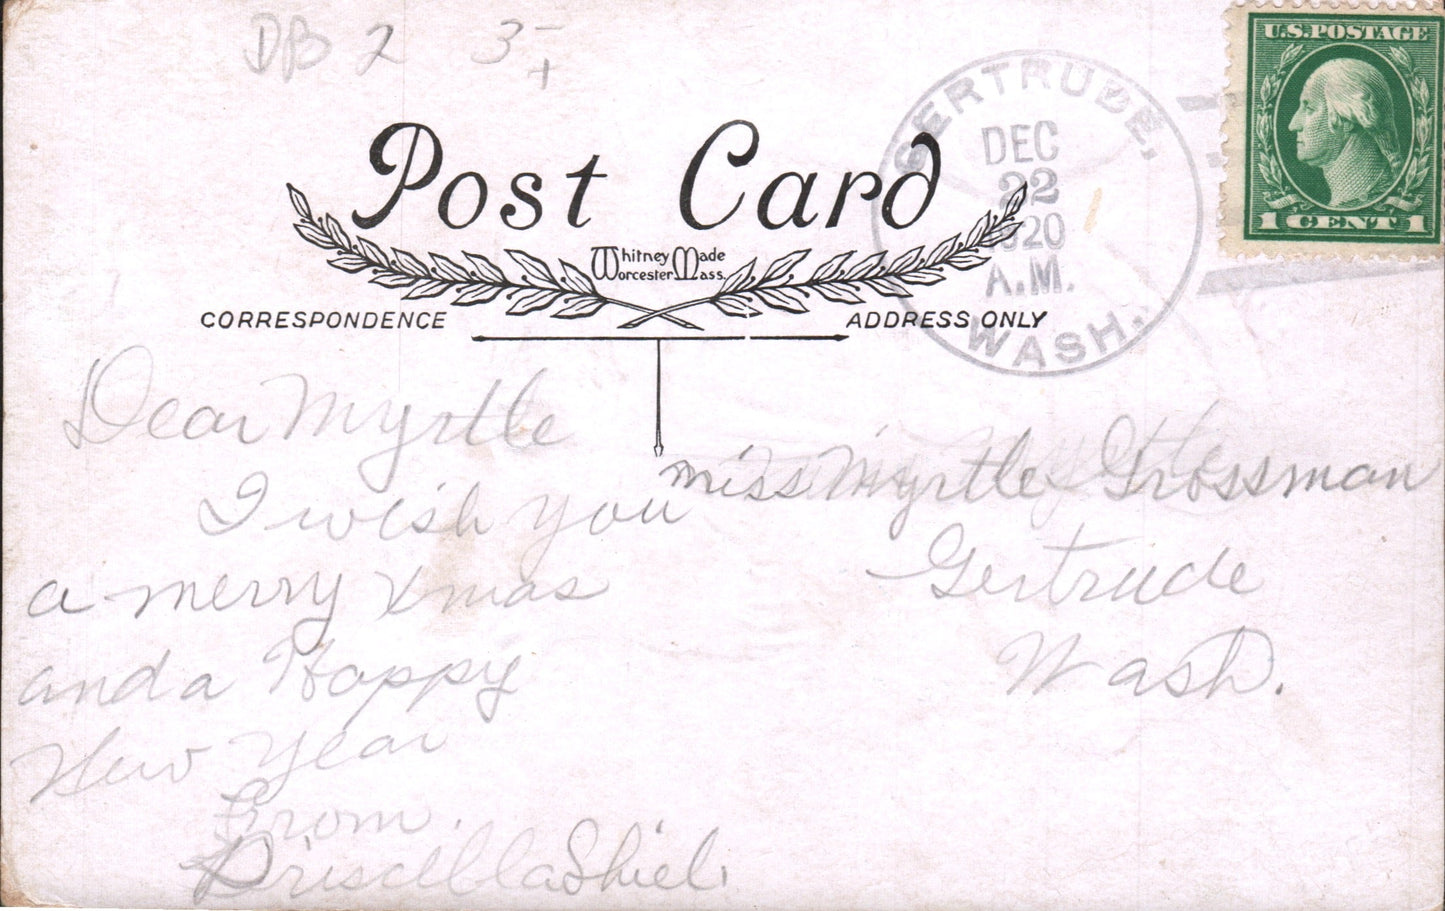 DB 2 3-
U.S. POSTAGE
1 CENT 1
GERTRUDE,
DEC
22
1920
A.M.
WASH.
Post Card
Whitney Made
Worcester Mass.
CORRESPONDENCE
ADDRESS ONLY
Dear Myrtle
I wish you
a merry Xmas
and a Happy
New Year
From.
Priscilla Shiel.
Miss Myrtle Grossman
Gertrude
Wash.